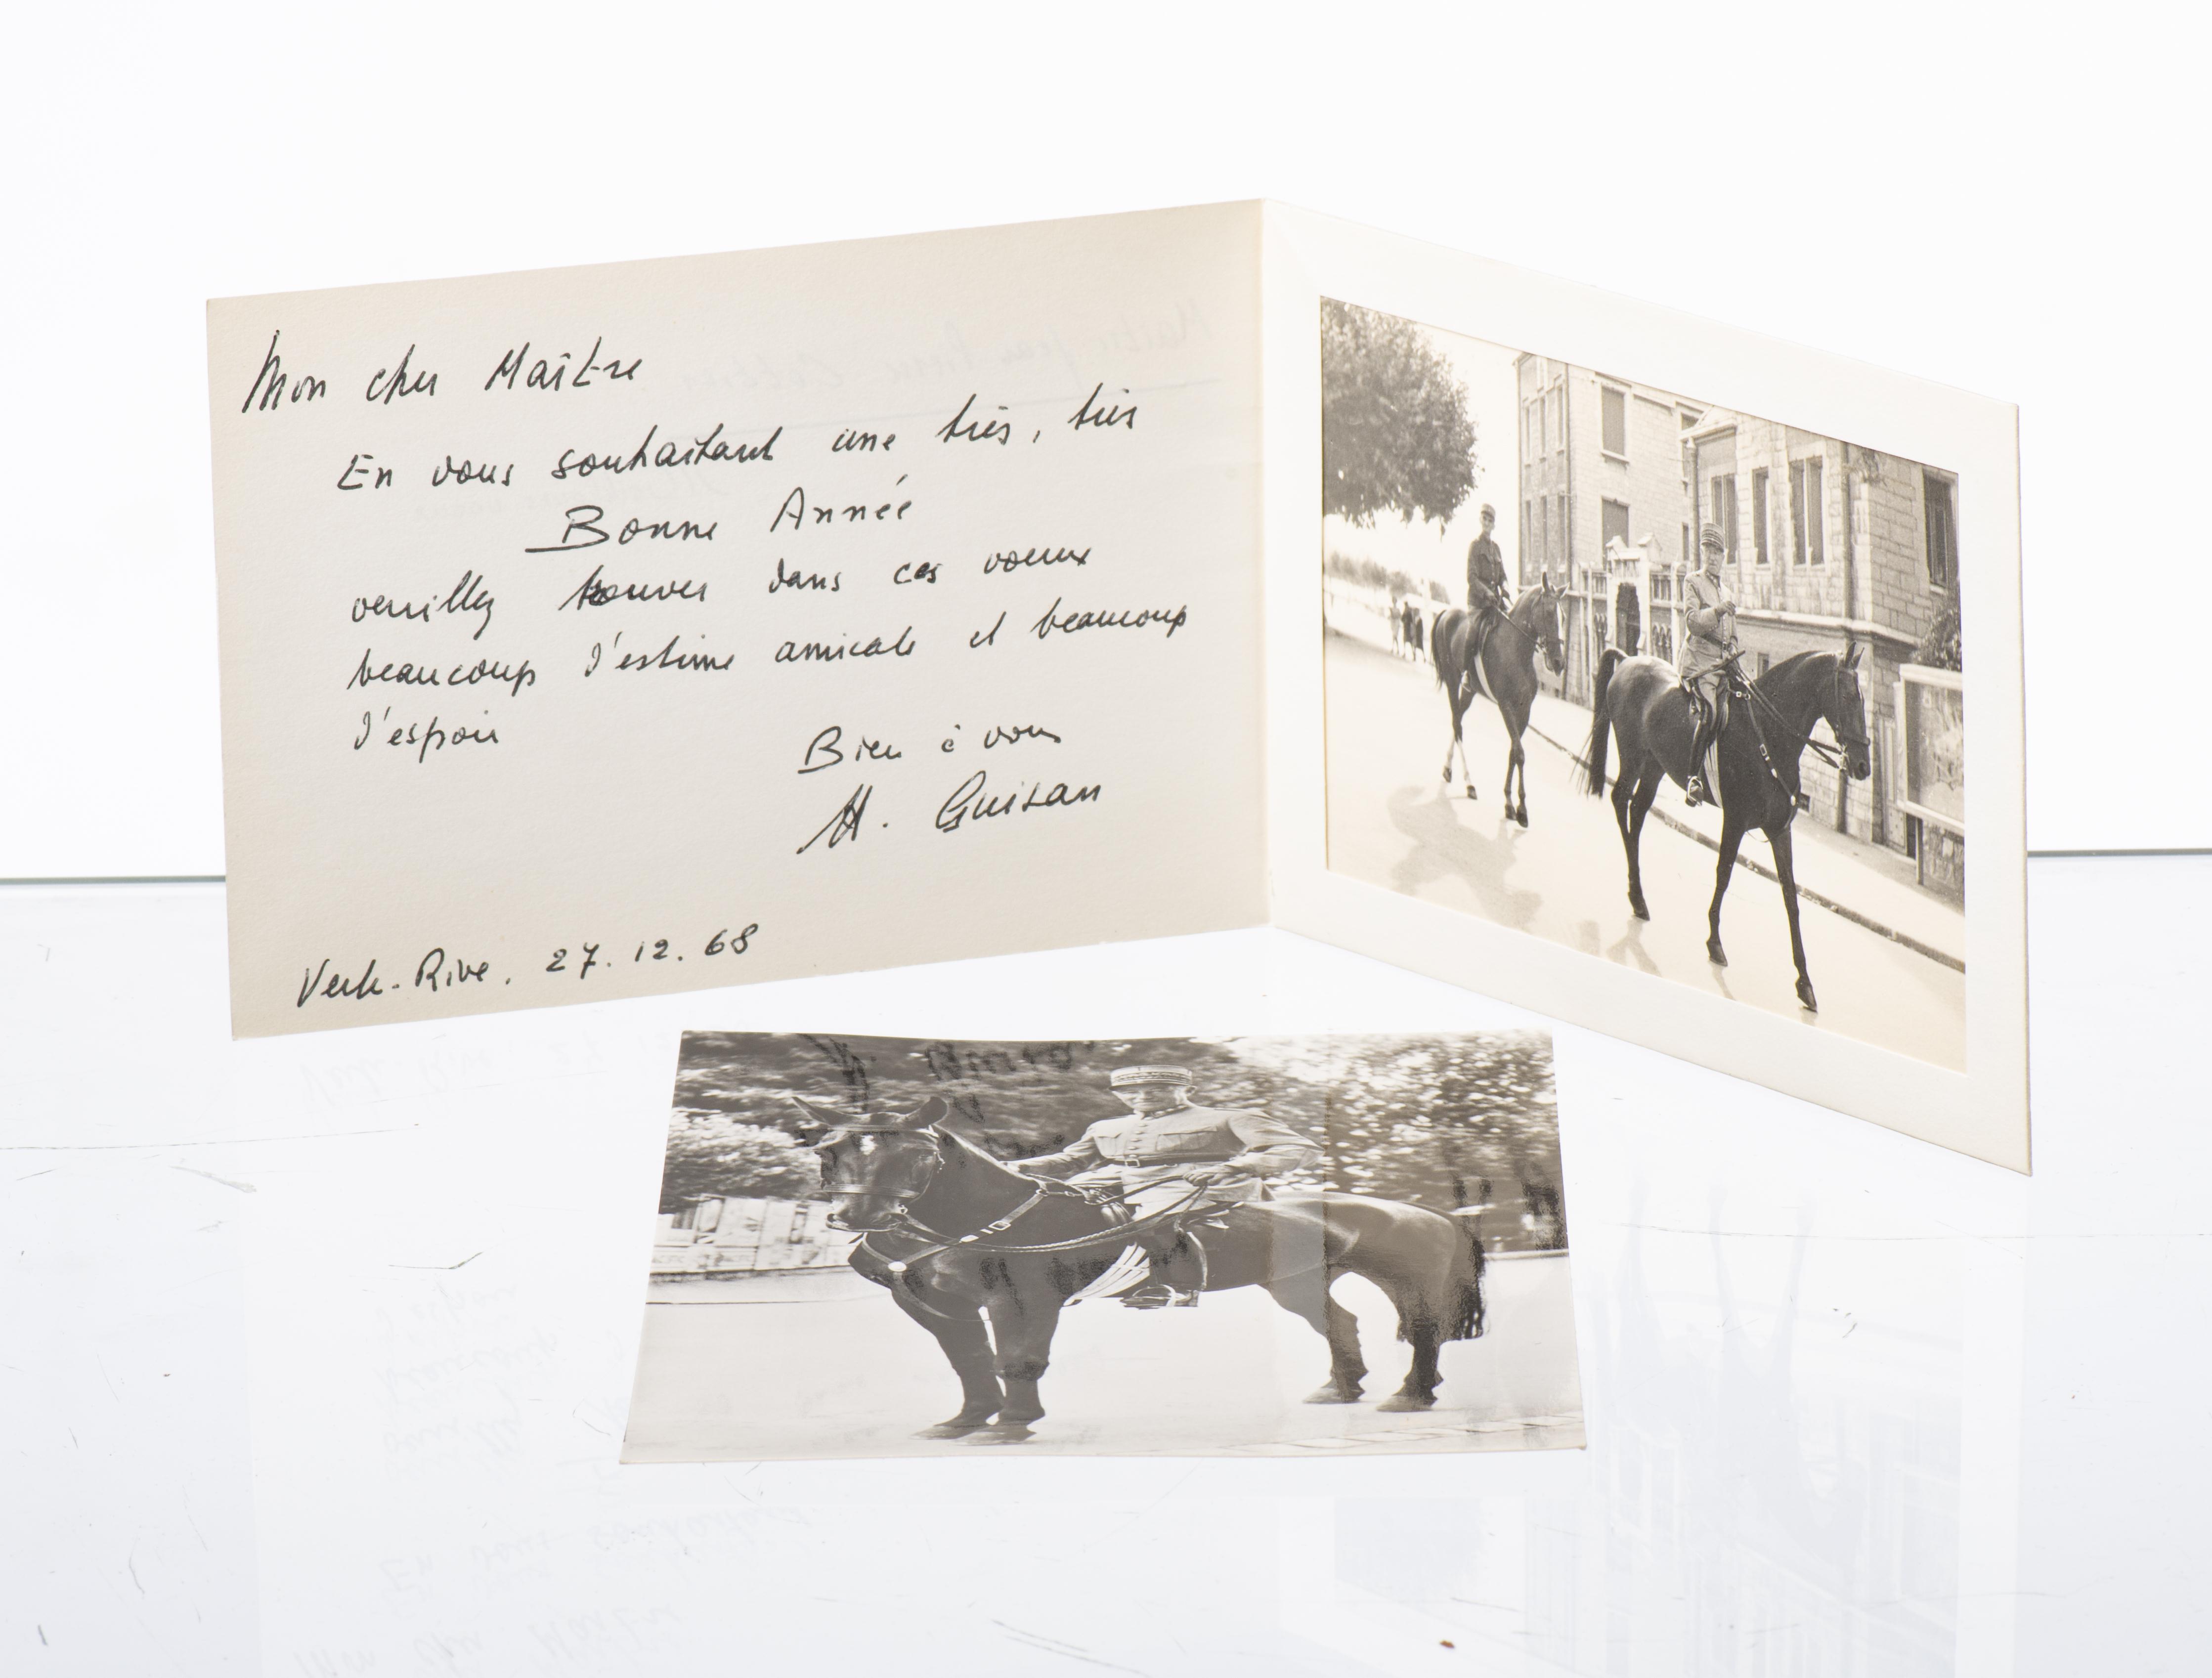 Mon cher Maître
En vous souhaitant une très, très
Bonne Année
veuillez trouver dans ces voeux
beaucoup d'estime amicale et beaucoup
d'espoir
Bien à vous
H. Guisan
Verte-Rive, 27.12.68